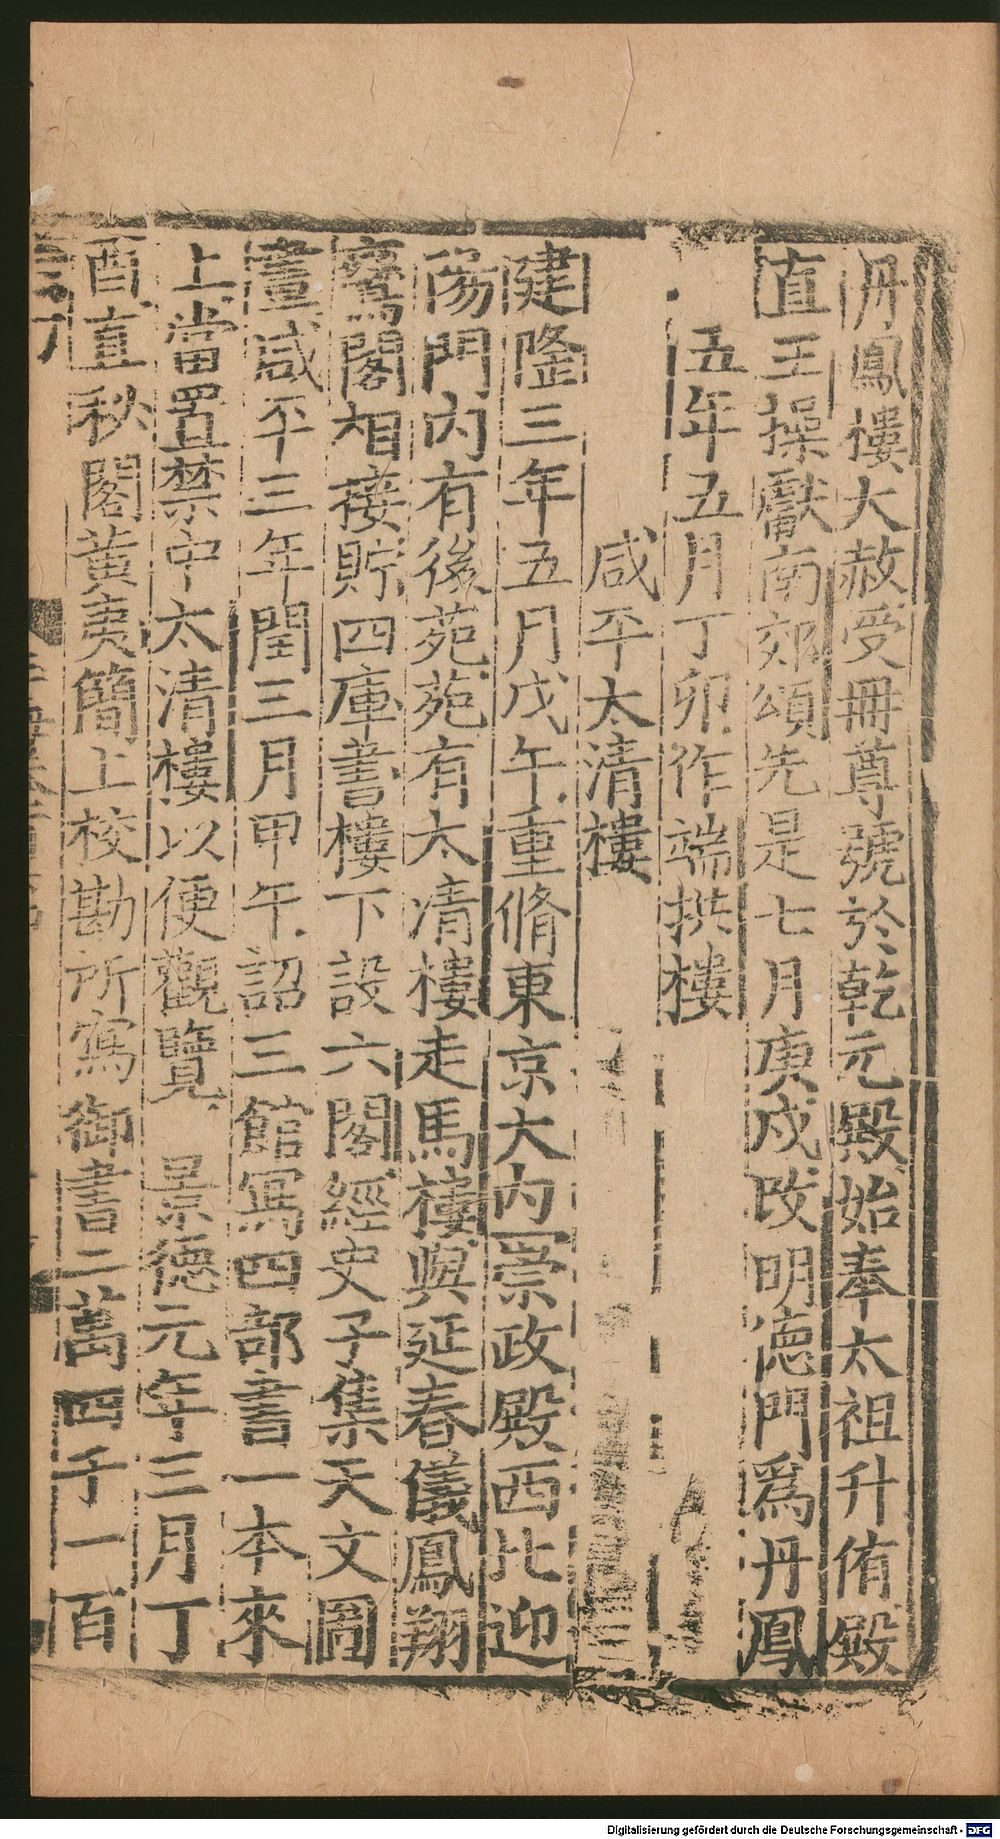 丹鳳樓大赦受冊尊號於乾元殿始奉太祖升侑殿
直王操獻南郊頌先是七月庚戍改明德門爲丹鳳
五年五月丁卯作端拱樓
咸平太清樓
建隆三年五月戊午重脩東京大內崇政殿西北迎
陽門內有後苑苑有太清樓走馬樓與延春儀鳳翔
鸞閣相接貯四庫書樓下設六閣經史子集天文圖
畫咸平三年閏三月甲午詔三館寫四部書一本來
上當置禁中太清樓以便觀覽 景德元年三月丁
酉直秘閣黃夷簡上校勘所寫御書二萬四千一百
Digitalisierung gefördert durch die Deutsche Forschungsgemeinschaft - DFG